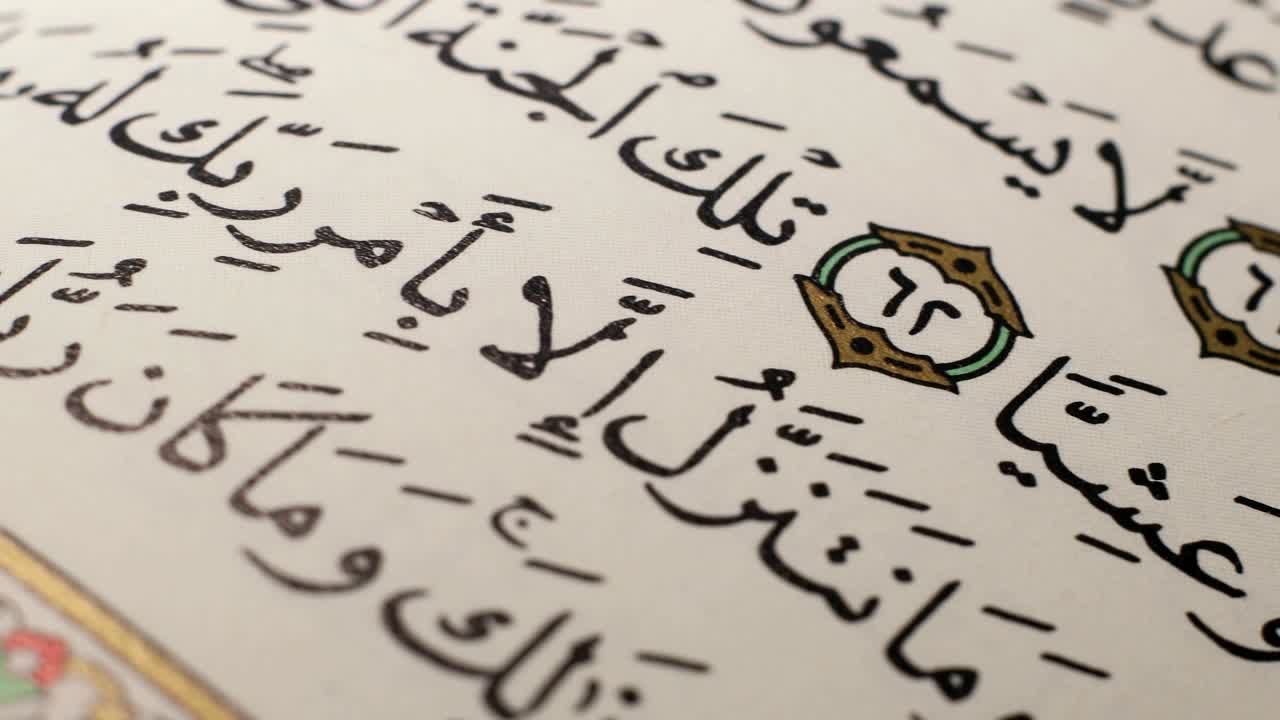 لَّا يَسْمَعُونَ
وَعَشِيًّا ٦٢ تِلْكَ ٱلْجَنَّةُ
وَمَا نَتَنَزَّلُ إِلَّا بِأَمْرِ رَبِّكَ ۖ لَهُۥ
ذَٰلِكَ ۚ وَمَا كَانَ